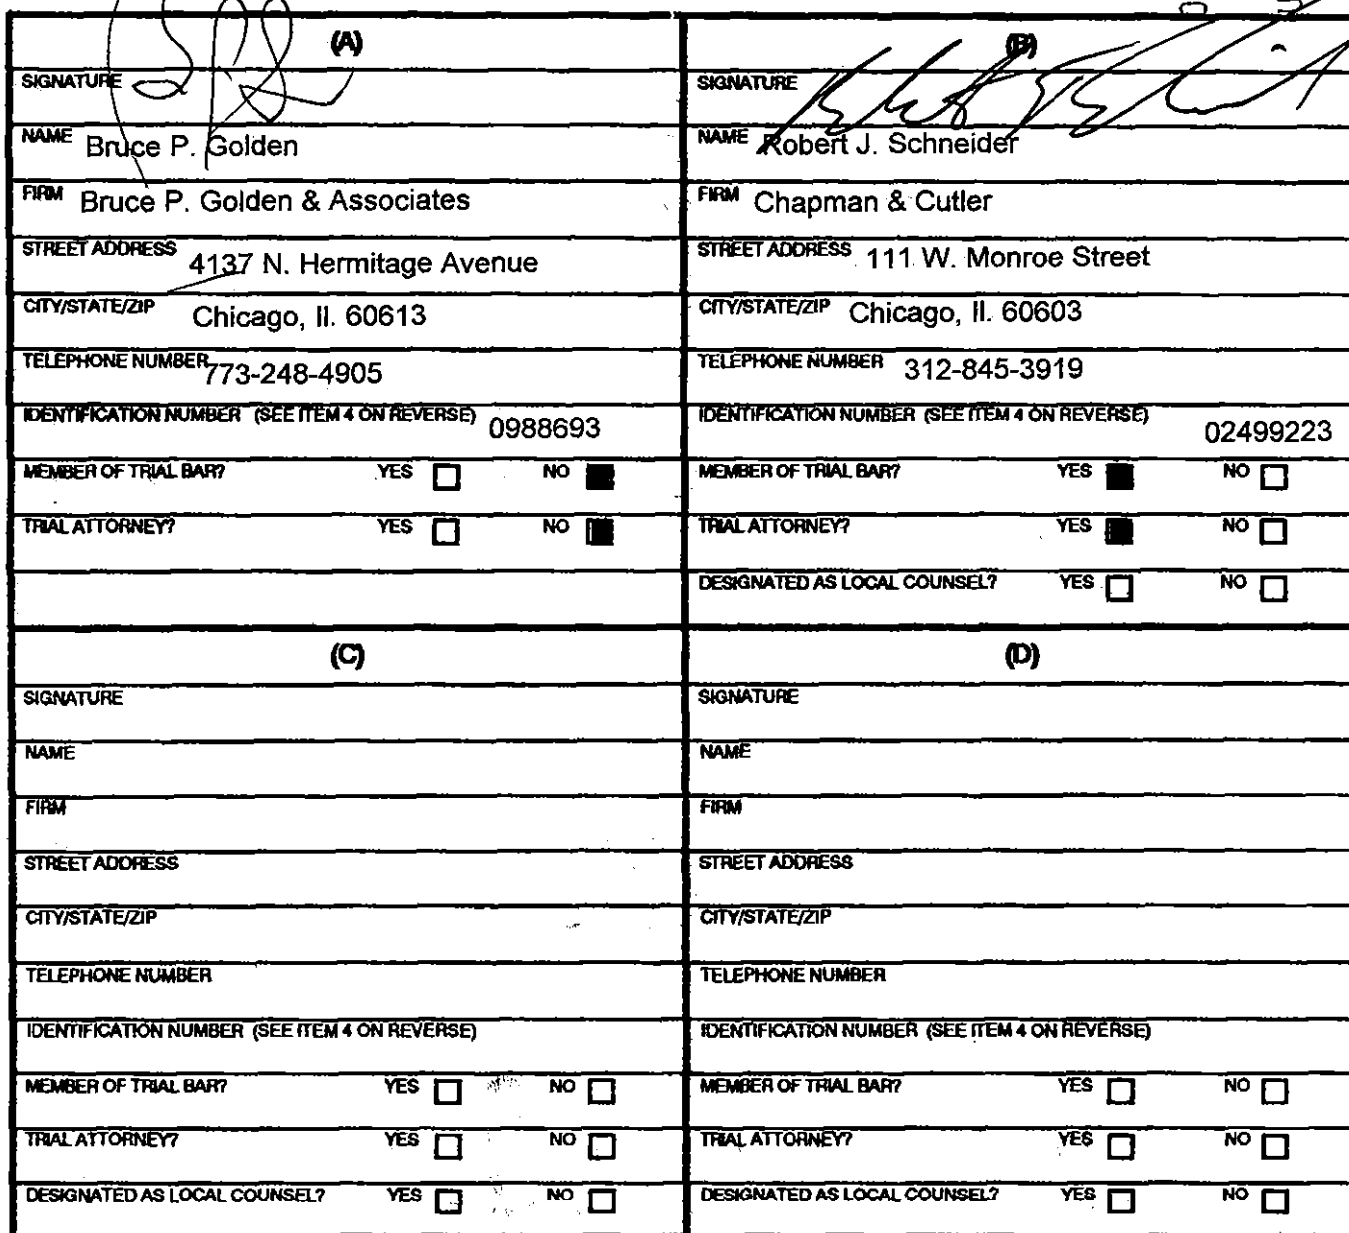 (A)
SIGNATURE
NAME Bruce P. Golden
FIRM Bruce P. Golden & Associates
STREET ADDRESS 4137 N. Hermitage Avenue
CITY/STATE/ZIP Chicago, Il. 60613
TELEPHONE NUMBER 773-248-4905
IDENTIFICATION NUMBER (SEE ITEM 4 ON REVERSE) 0988693
MEMBER OF TRIAL BAR? YES NO
TRIAL ATTORNEY? YES NO
(B)
SIGNATURE
NAME Robert J. Schneider
FIRM Chapman & Cutler
STREET ADDRESS 111 W. Monroe Street
CITY/STATE/ZIP Chicago, Il. 60603
TELEPHONE NUMBER 312-845-3919
IDENTIFICATION NUMBER (SEE ITEM 4 ON REVERSE) 02499223
MEMBER OF TRIAL BAR? YES NO
TRIAL ATTORNEY? YES NO
DESIGNATED AS LOCAL COUNSEL? YES NO
(C)
SIGNATURE
NAME
FIRM
STREET ADDRESS
CITY/STATE/ZIP
TELEPHONE NUMBER
IDENTIFICATION NUMBER (SEE ITEM 4 ON REVERSE)
MEMBER OF TRIAL BAR? YES NO
TRIAL ATTORNEY? YES NO
DESIGNATED AS LOCAL COUNSEL? YES NO
(D)
SIGNATURE
NAME
FIRM
STREET ADDRESS
CITY/STATE/ZIP
TELEPHONE NUMBER
IDENTIFICATION NUMBER (SEE ITEM 4 ON REVERSE)
MEMBER OF TRIAL BAR? YES NO
TRIAL ATTORNEY? YES NO
DESIGNATED AS LOCAL COUNSEL? YES NO